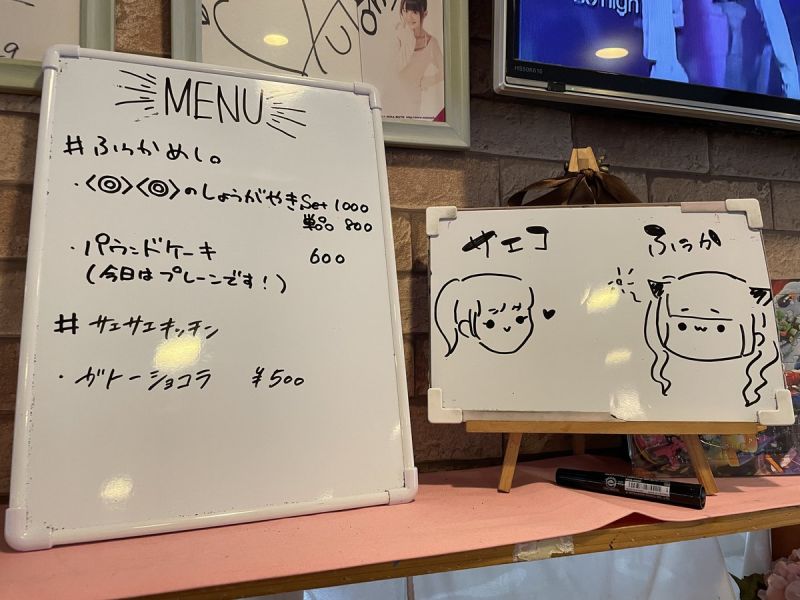 MENU
#ふうかめし。
・<◎><◎>のしょうがやき Set 1000
単品 800
・パウンドケーキ 600
(今日はプレーンです!)
#サエサエキッチン
・ガトーショコラ ¥500
サエコ
ふうか
high